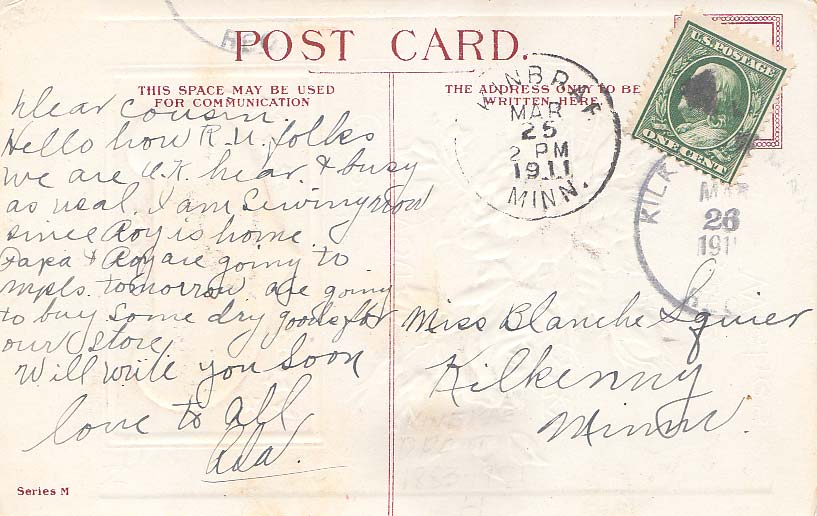 POST CARD.
THIS SPACE MAY BE USED
FOR COMMUNICATION
THE ADDRESS ONLY TO BE
WRITTEN HERE.
Dear cousin.
Hello how R.U. folks
we are O.K. hear & busy
as usal. I am Sewing now
since Roy is home
Papa & Roy are going to
Mpls. tomorrow are going
to buy some dry goods for
our store
Will write you soon
love to all
Ada.
Series M
MAR
25
2 PM
1911
MINN.
U.S. POSTAGE
ONE CENT
MAR
26
Miss Blanche Squier
Kilkenny
Minn.